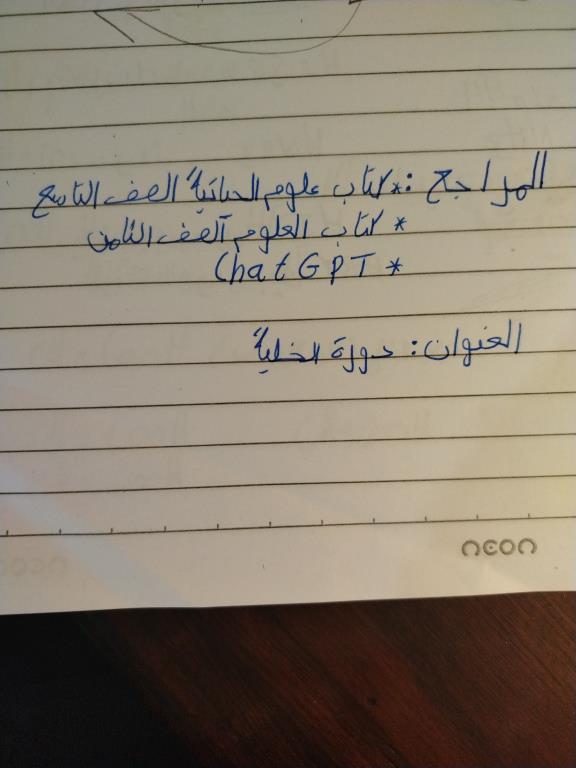 المراجع: * كتاب علوم الحياتية الصف التاسع
* كتاب العلوم الصف الثامن
* Chat GPT
العنوان: دورة الخلية
neon